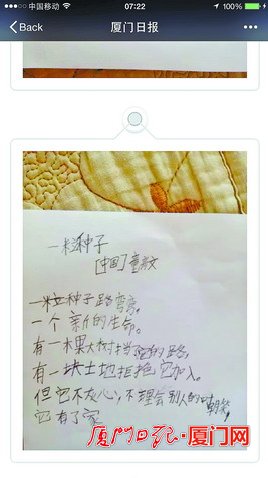 中国移动 07:22 100%
Back 厦门日报
一粒种子
[中国]童
一粒种子路弯弯。
一个新的生命。
有一棵大树挡它的路,
有一块土地拒绝它加入。
但它不灰心,不理会别人的嘲笑,
它有了家
厦门日报·厦门网